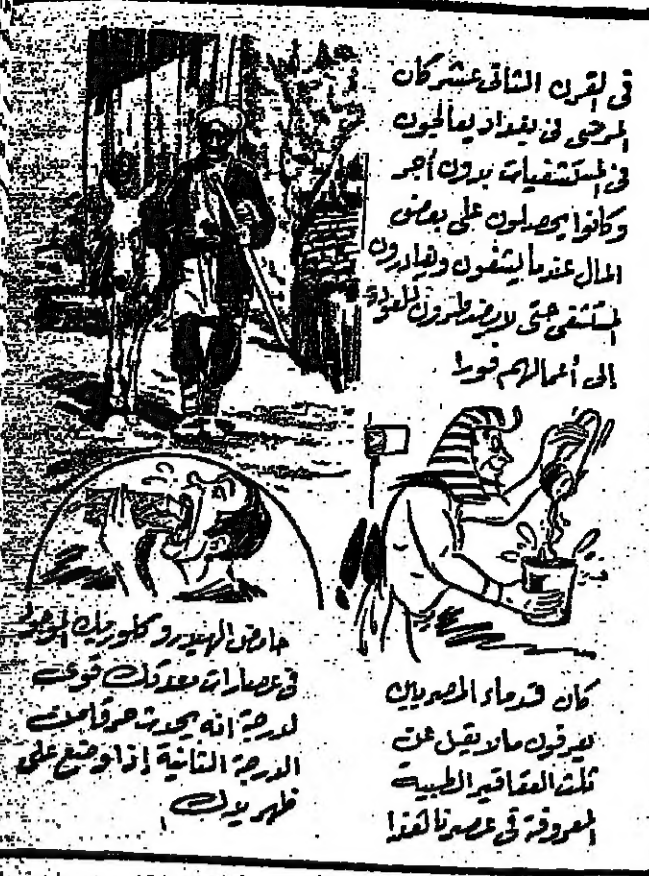 في القرن الثاني عشر كان
المرضى في بغداد يعالجون
في المستشفيات بدون أجر
وكانوا يحصلون على بعض
المال عندما يشفون ويغادرون
المستشفى حتى لا يضطرون للعودة
إلى أعمالهم فورا
كان قدماء المصريين
يعرفون مالا يقل عن
ثلث العقاقير الطبية
المعروفة في عصرنا هذا
حامض الهيدروكلوريك الموجود
في عصارات معدتك قوى
لدرجة انه يحدث حرقا من
الدرجة الثانية إذا وضع على
ظهر يدك